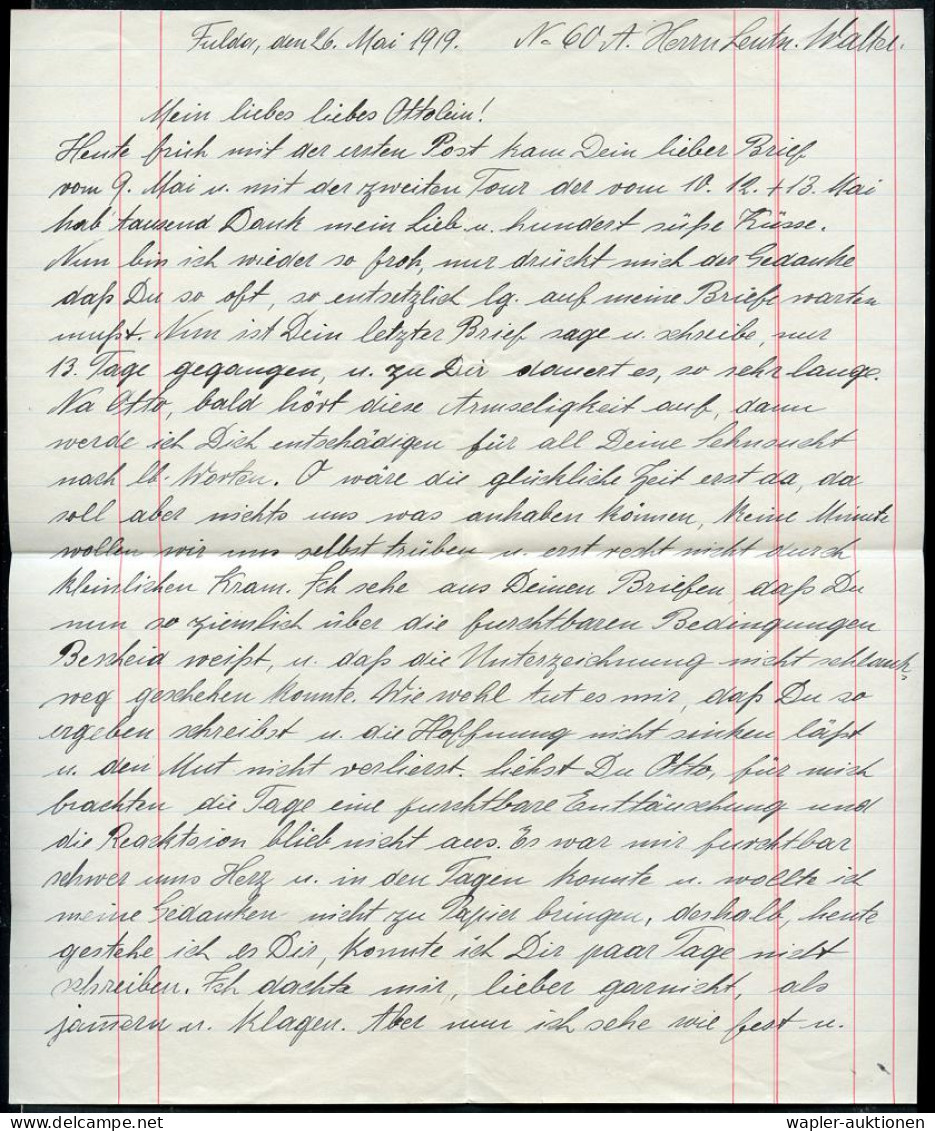 Fulda, den 26. Mai 1919. No 60 A. Herrn Leutn. Walter.
Mein liebes liebes Ottolein!
Heute früh mit der ersten Post kam Dein lieber Brief
vom 9. Mai u. mit der zweiten Tour der vom 10. 12. + 13. Mai
hab' tausend Dank mein Lieb u. hundert süße Küsse.
Nun bin ich wieder so froh, nur drückt mich der Gedanke
daß Du so oft, so entsetzlich lg. auf meine Briefe warten
mußt. Nun ist Dein letzter Brief sage u. schreibe, nur
13. Tage gegangen, u. zu Dir dauert es, so sehr lange.
Na Otto, bald hört diese Armseligkeit auf, dann
werde ich Dich entschädigen für all Deine Sehnsucht
nach lb. Worten. O wäre die glückliche Zeit erst da, da
soll aber nichts uns was anhaben können, keine Minute
wollen wir uns selbst trüben u. erst recht nicht durch
kleinlichen Kram. Ich sehe aus Deinen Briefen, daß Du
nun so ziemlich über die furchtbaren Bedingungen
Bescheid weißt, u. daß die Unterzeichnung nicht schlank
weg geschehen konnte. Wie wohl tut es mir, daß Du so
ergeben schreibst u. die Hoffnung nicht sinken läßt
u. den Mut nicht verlierst. Siehst Du Otto, für mich
brachten die Tage eine furchtbare Enttäuschung und
die Reacktsion blieb nicht aus. Es war mir furchtbar
schwer ums Herz u. in den Tagen konnte u. wollte ich
meine Gedanken nicht zu Papier bringen, deshalb, heute
gestehe ich es Dir, konnte ich Dir paar Tage nicht
schreiben. Ich dachte mir, lieber garnicht, als
jam̄ern u. klagen. Aber nun ich sehe wie fest u.
wapler-auktionen